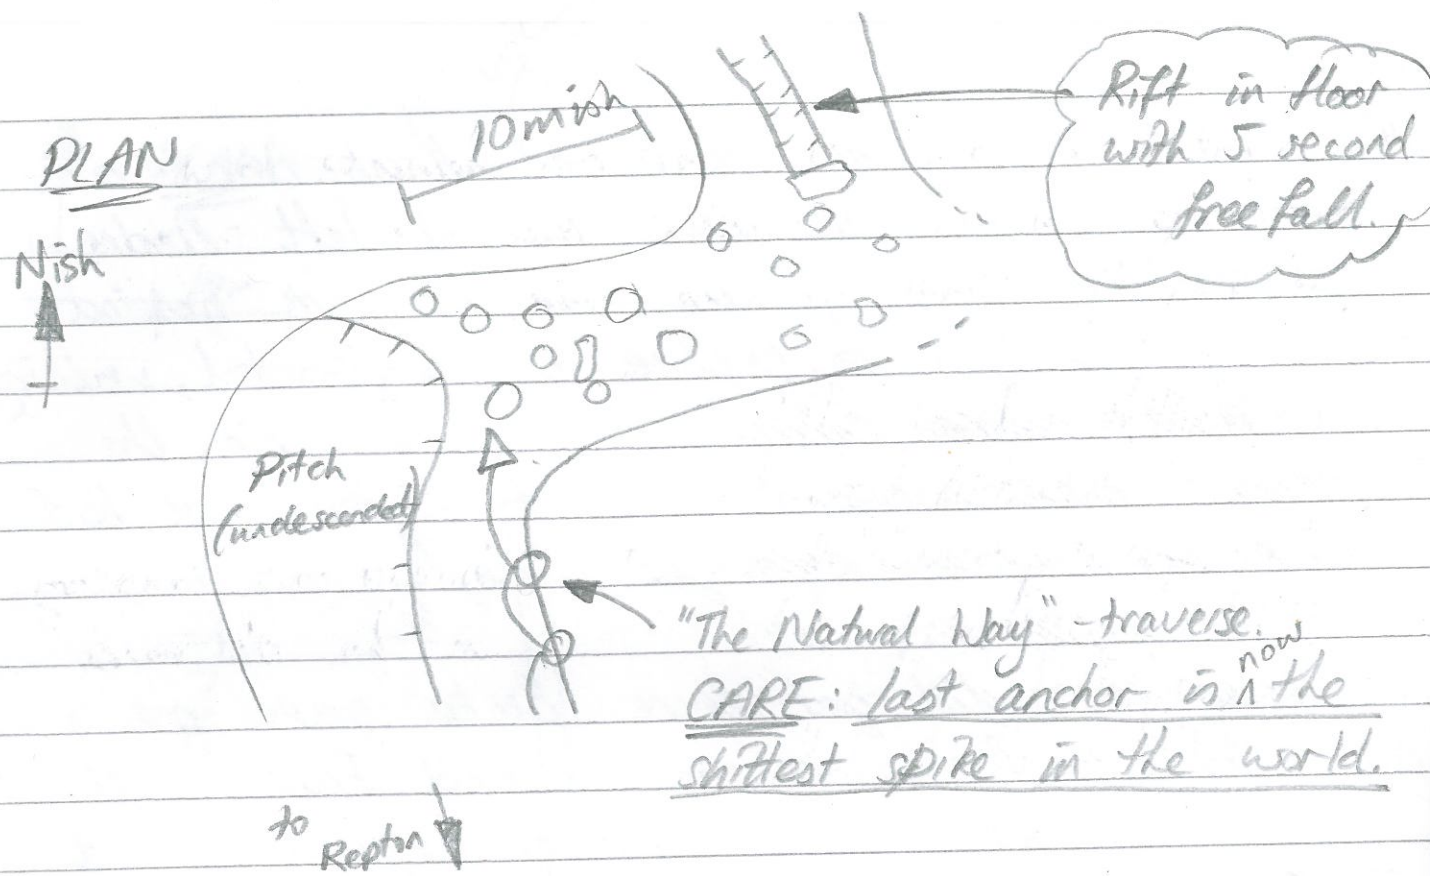 PLAN
10mish
Rift in floor
with 5 second
free fall.
Nish
Pitch
(undescended)
"The Natural Way" - traverse.
CARE: last anchor is now the
shittest spike in the world.
to Repton